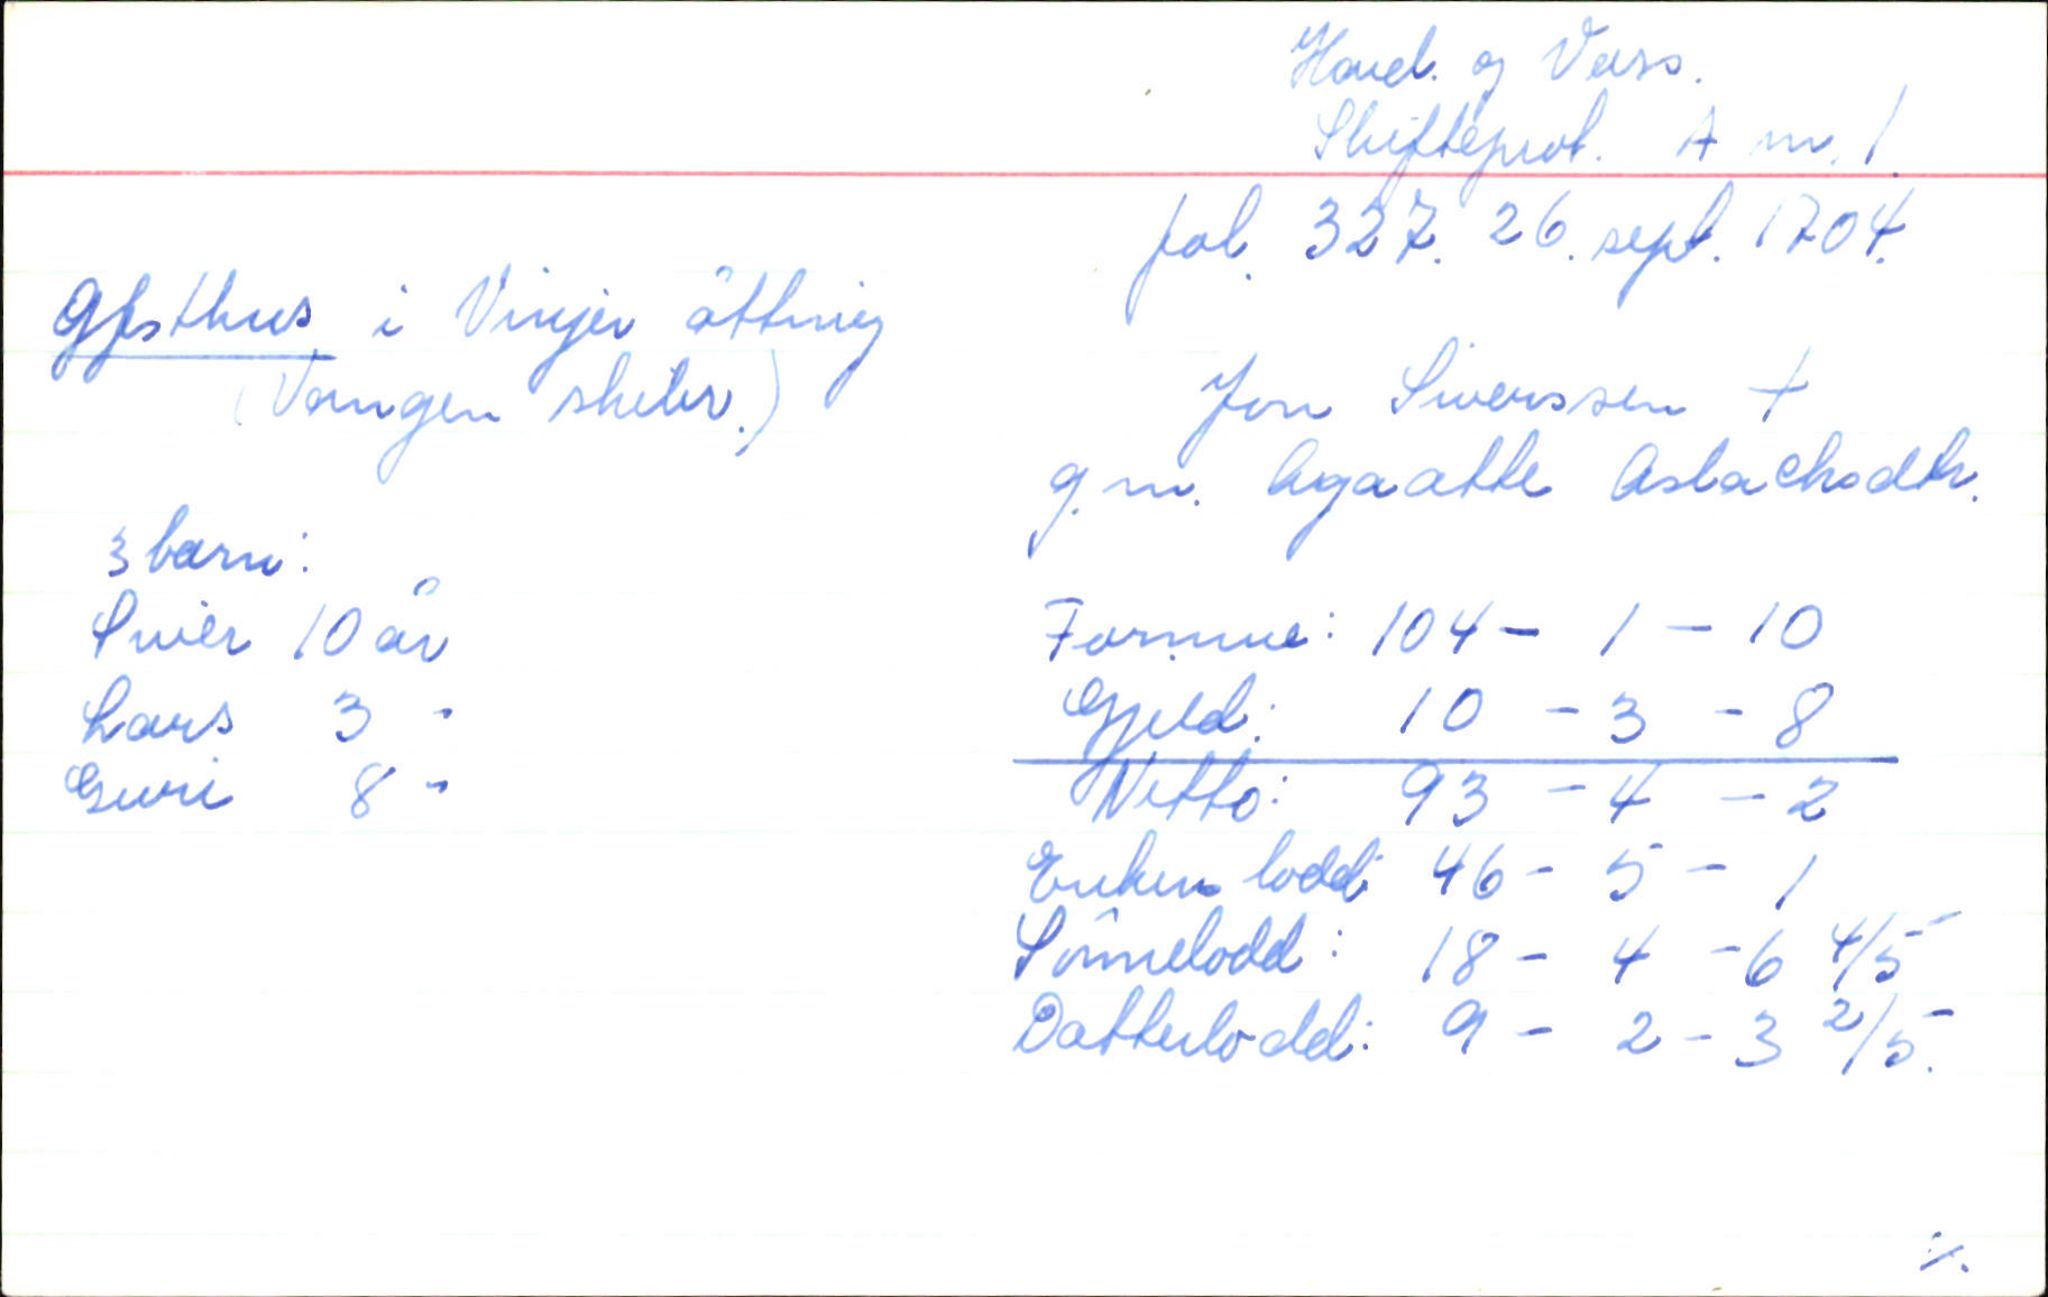 Hard. og Voss.
Skifteprot. A nr. 1
fol. 327. 26. sept. 1704.
Gjesthus i Vinjer åttung
(Vangen skibr.)
Jon Siverssen +
g.m. Agaatte Aslachsdtr.
3 barn:
Siver 10 år
Lars 3 -
Guri 8 -
Formue: 104 - 1 - 10
Gjeld: 10 - 3 - 8
Netto: 93 - 4 - 2
Enkens lodd: 46 - 5 - 1
Sønnelodd: 18 - 4 - 6 4/5
Datterlodd: 9 - 2 - 3 2/5.